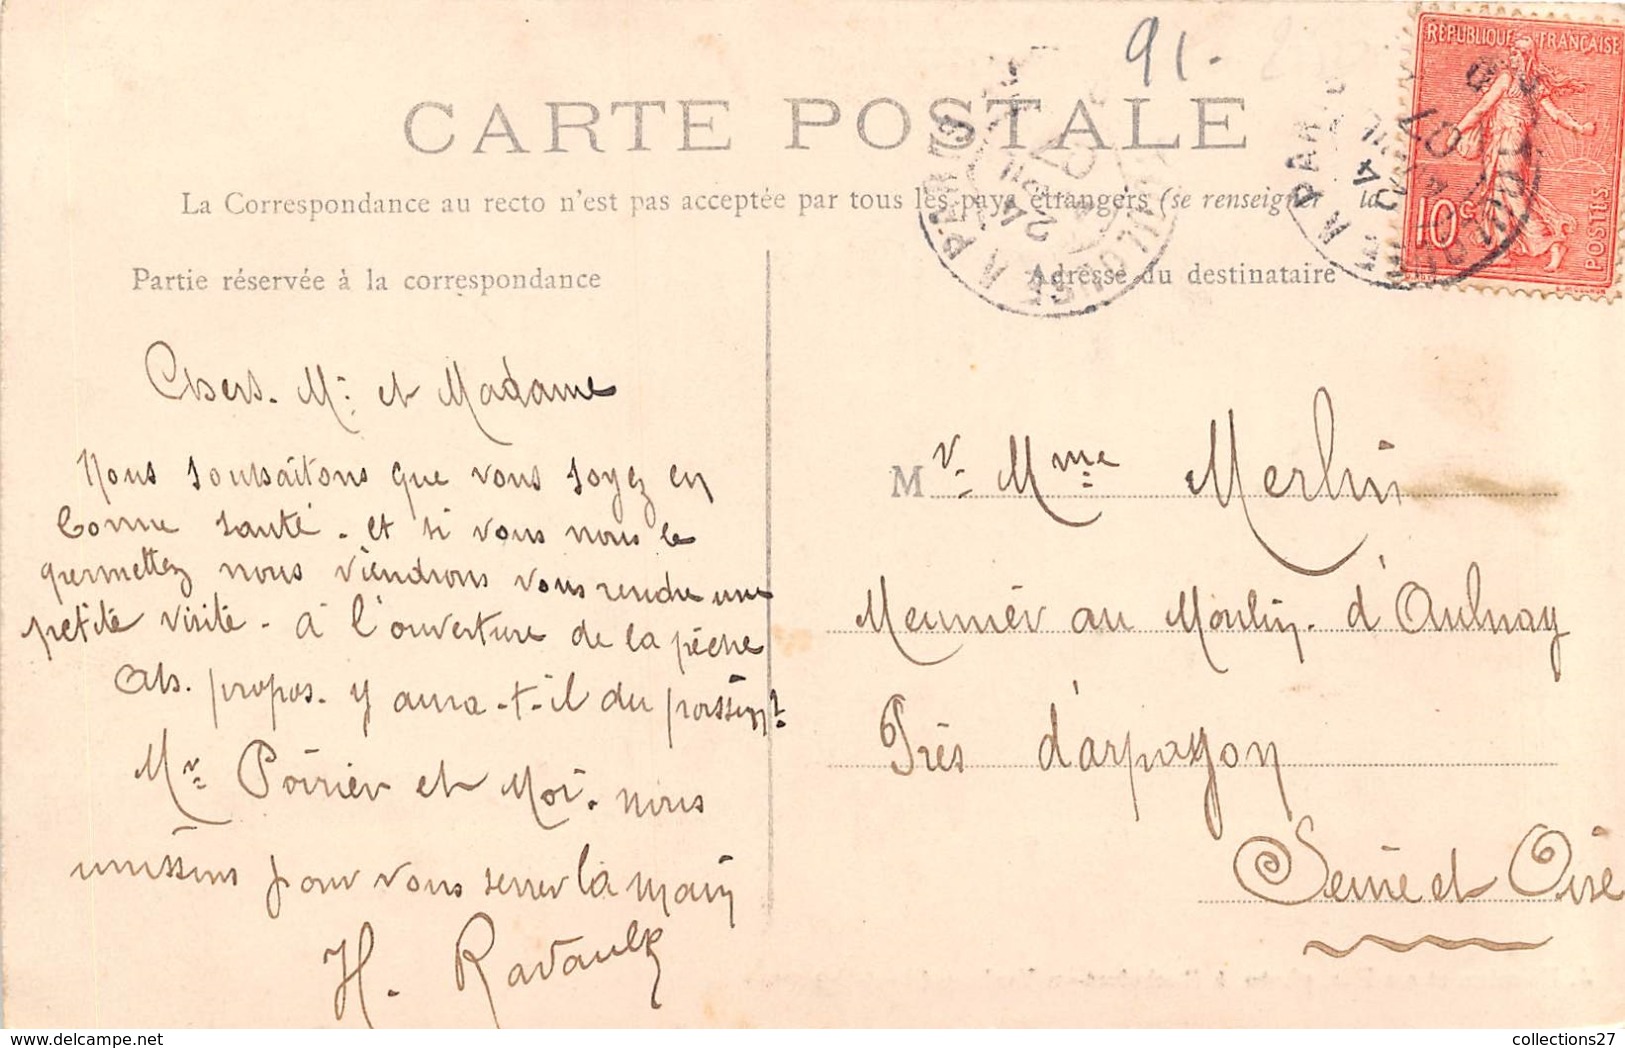 91.
CARTE POSTALE
La Correspondance au recto n'est pas acceptée par tous les pays étrangers (se renseigner à la
Partie réservée à la correspondance
Adresse du destinataire
RÉPUBLIQUE FRANÇAISE
10c
POSTES
Chers. Mr et Madame
Nous souhaitons que vous soyez en
bonne santé. et si vous nous le
permettez nous viendrons vous rendre une
petite visite - à l'ouverture de la pêche
Ah. propos. y aura-t-il du poisson?
Mr Poirier et Moi. nous
unissons pour vous serrer la main
H. Ravault
Mr. Mme Merlin
Meunier au Moulin. d'Aulnay
Près d'arpajon
Seine et Oise
collections27